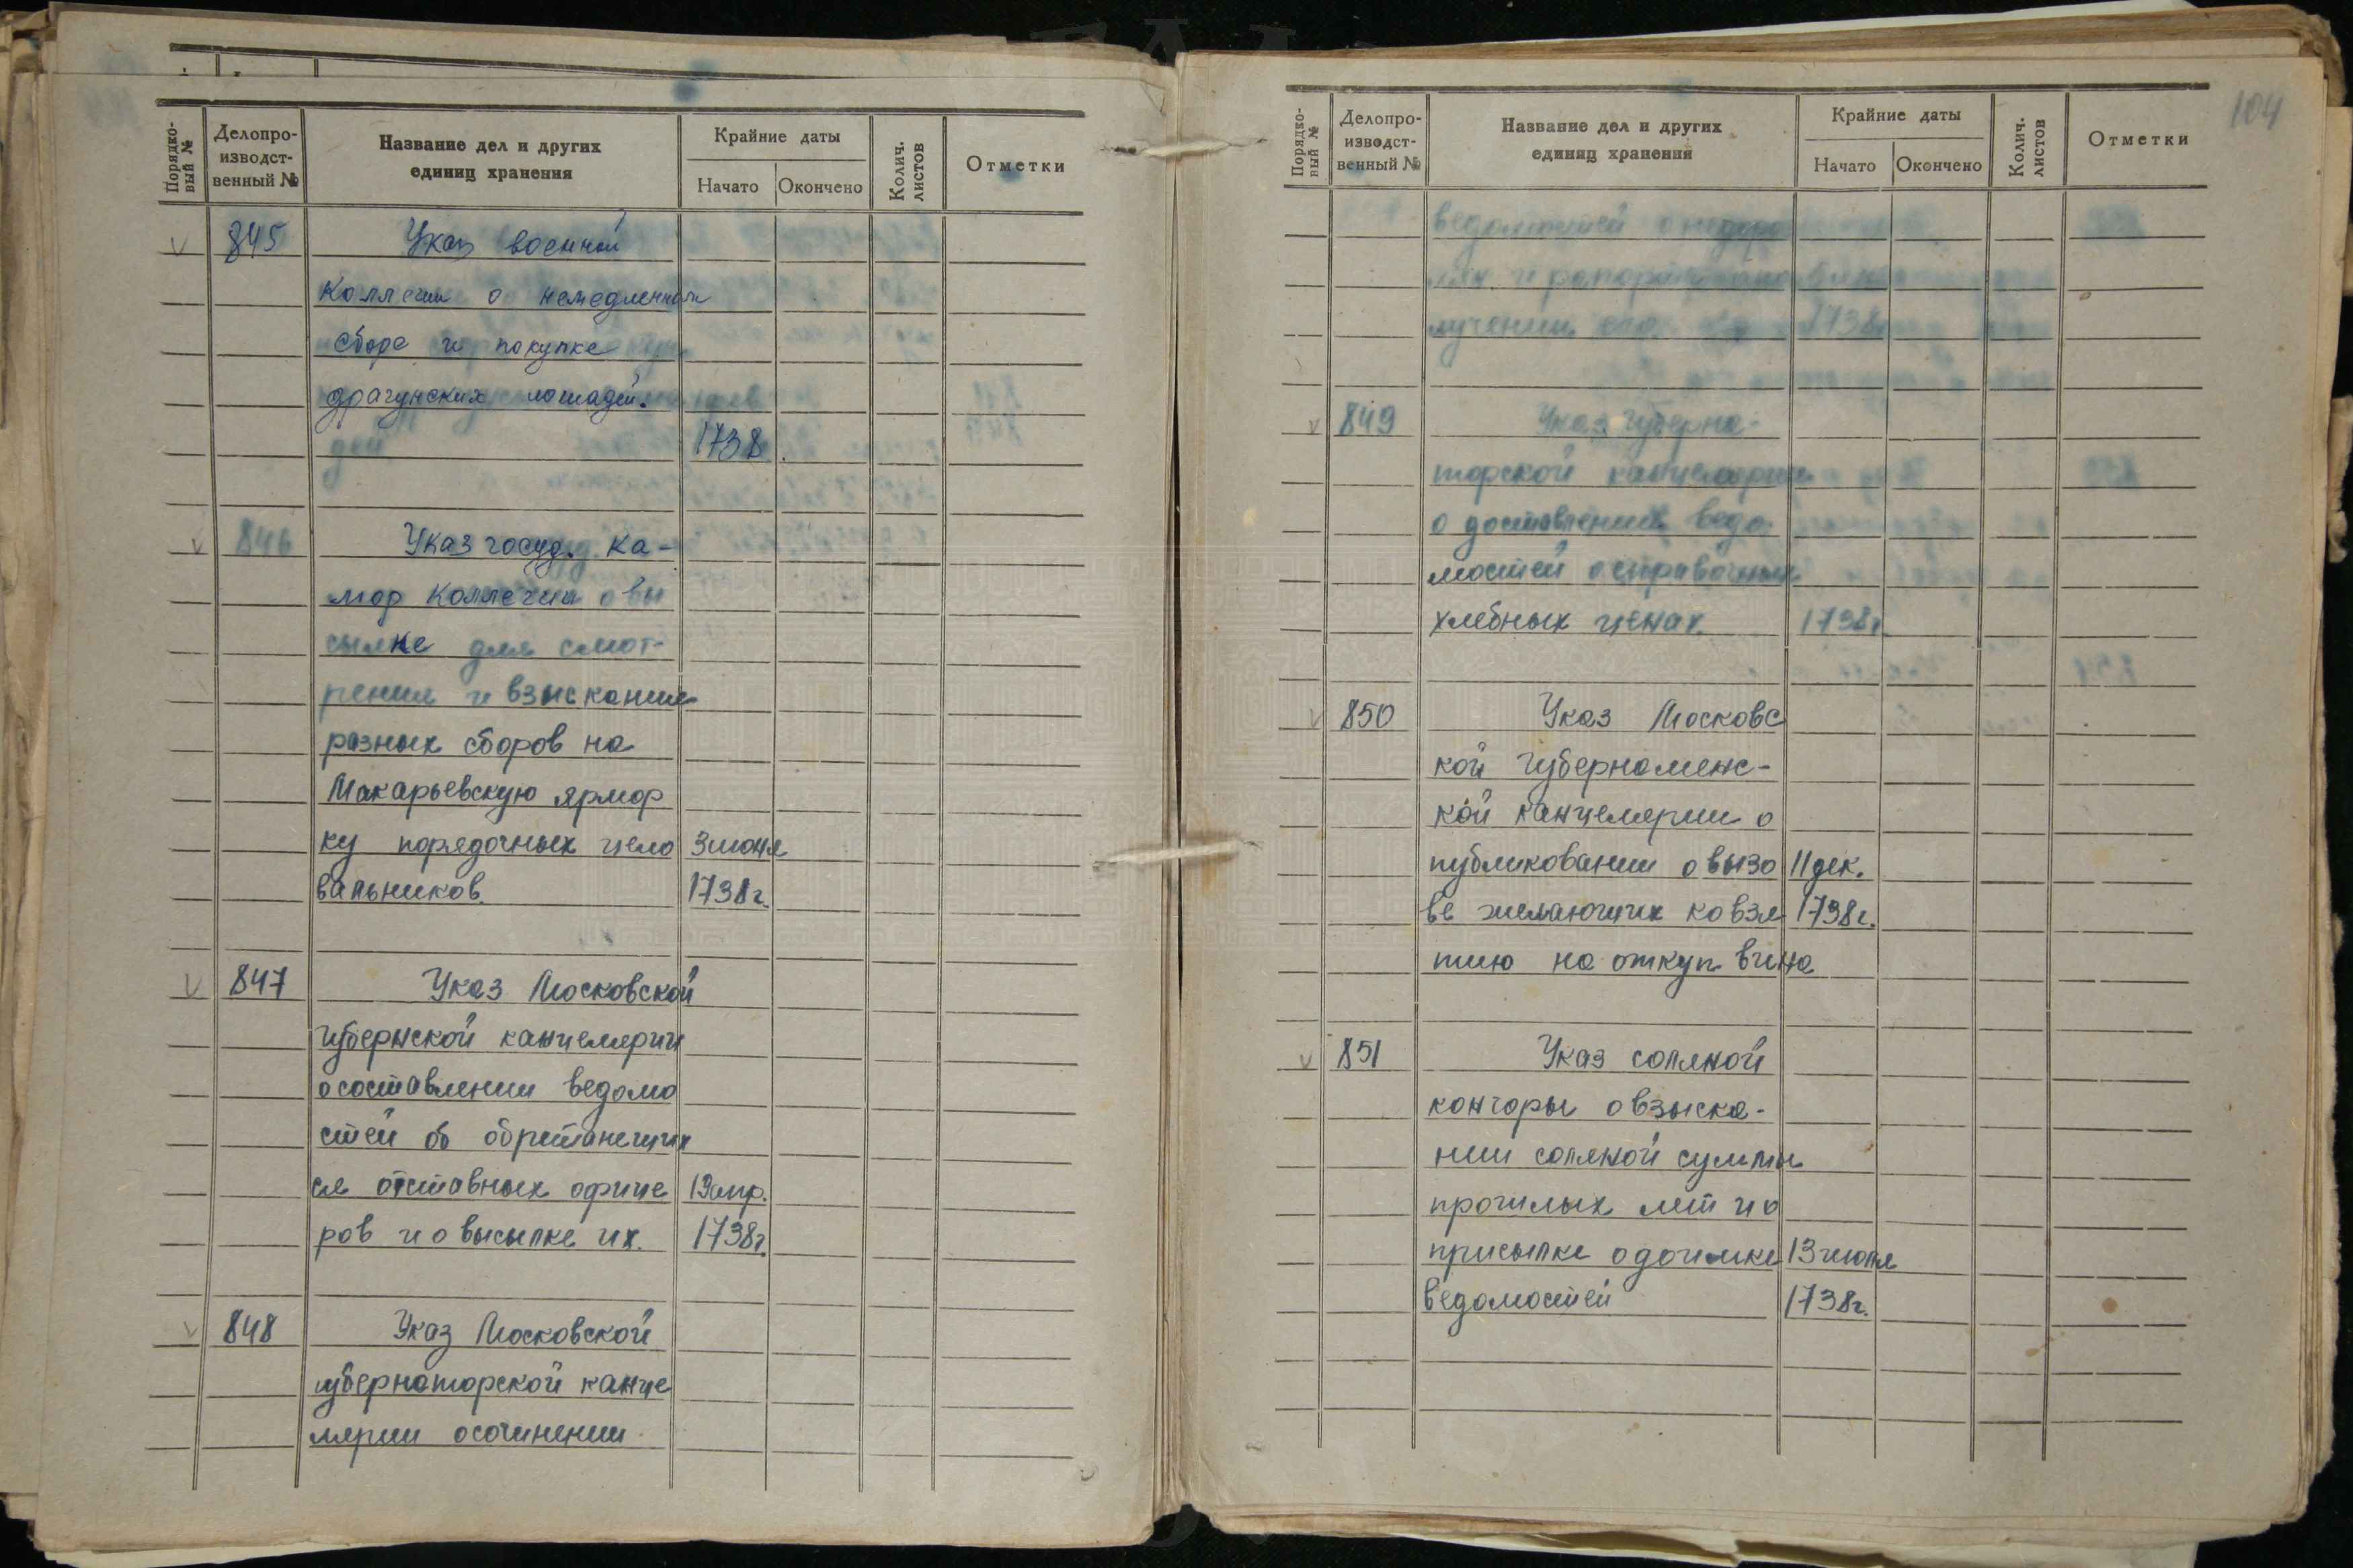 Порядко-
вый №
Делопро-
изводст-
венный №
Название дел и других
единиц хранения
Крайние даты
Начато
Окончено
Колич.
листов
Отметки
845
Указ военной
Коллегии о немедленном
сборе и покупке
драгунских лошадей.
1738
846
Указ госуд. ка-
мор Коллегии о вы
сылке для смот-
рения и взыскания
разных сборов на
Макарьевскую ярмор
ку порядочных цело
3 июня
вальников.
1738г.
847
Указ Московской
губернской канцелярии
о составлении ведомо
стей об обретающих
ся отставных офице
19 апр.
ров и о высылке их.
1738г.
848
Указ Московской
губернаторской канце
лярии о сочинении
104
Порядко-
вый №
Делопро-
изводст-
венный №
Название дел и других
единиц хранения
Крайние даты
Начато
Окончено
Колич.
листов
Отметки
ведомостей о недоро
лучении его
1738г
849
Указ Губерна-
торской канцелярии
о доставлении ведо-
мостей о справочных
хлебных ценах.
1738г
850
Указ Московс
кой Губернаменс-
кой канцелярии о
публиковании о вызо
11 дек.
ве желающих ко взя
1738г.
тию на откуп вина
851
Указ соляной
конторы о взыска-
нии соляной суммы
прошлых лет и о
присылке о доимке
13 июля
ведомостей
1738г.